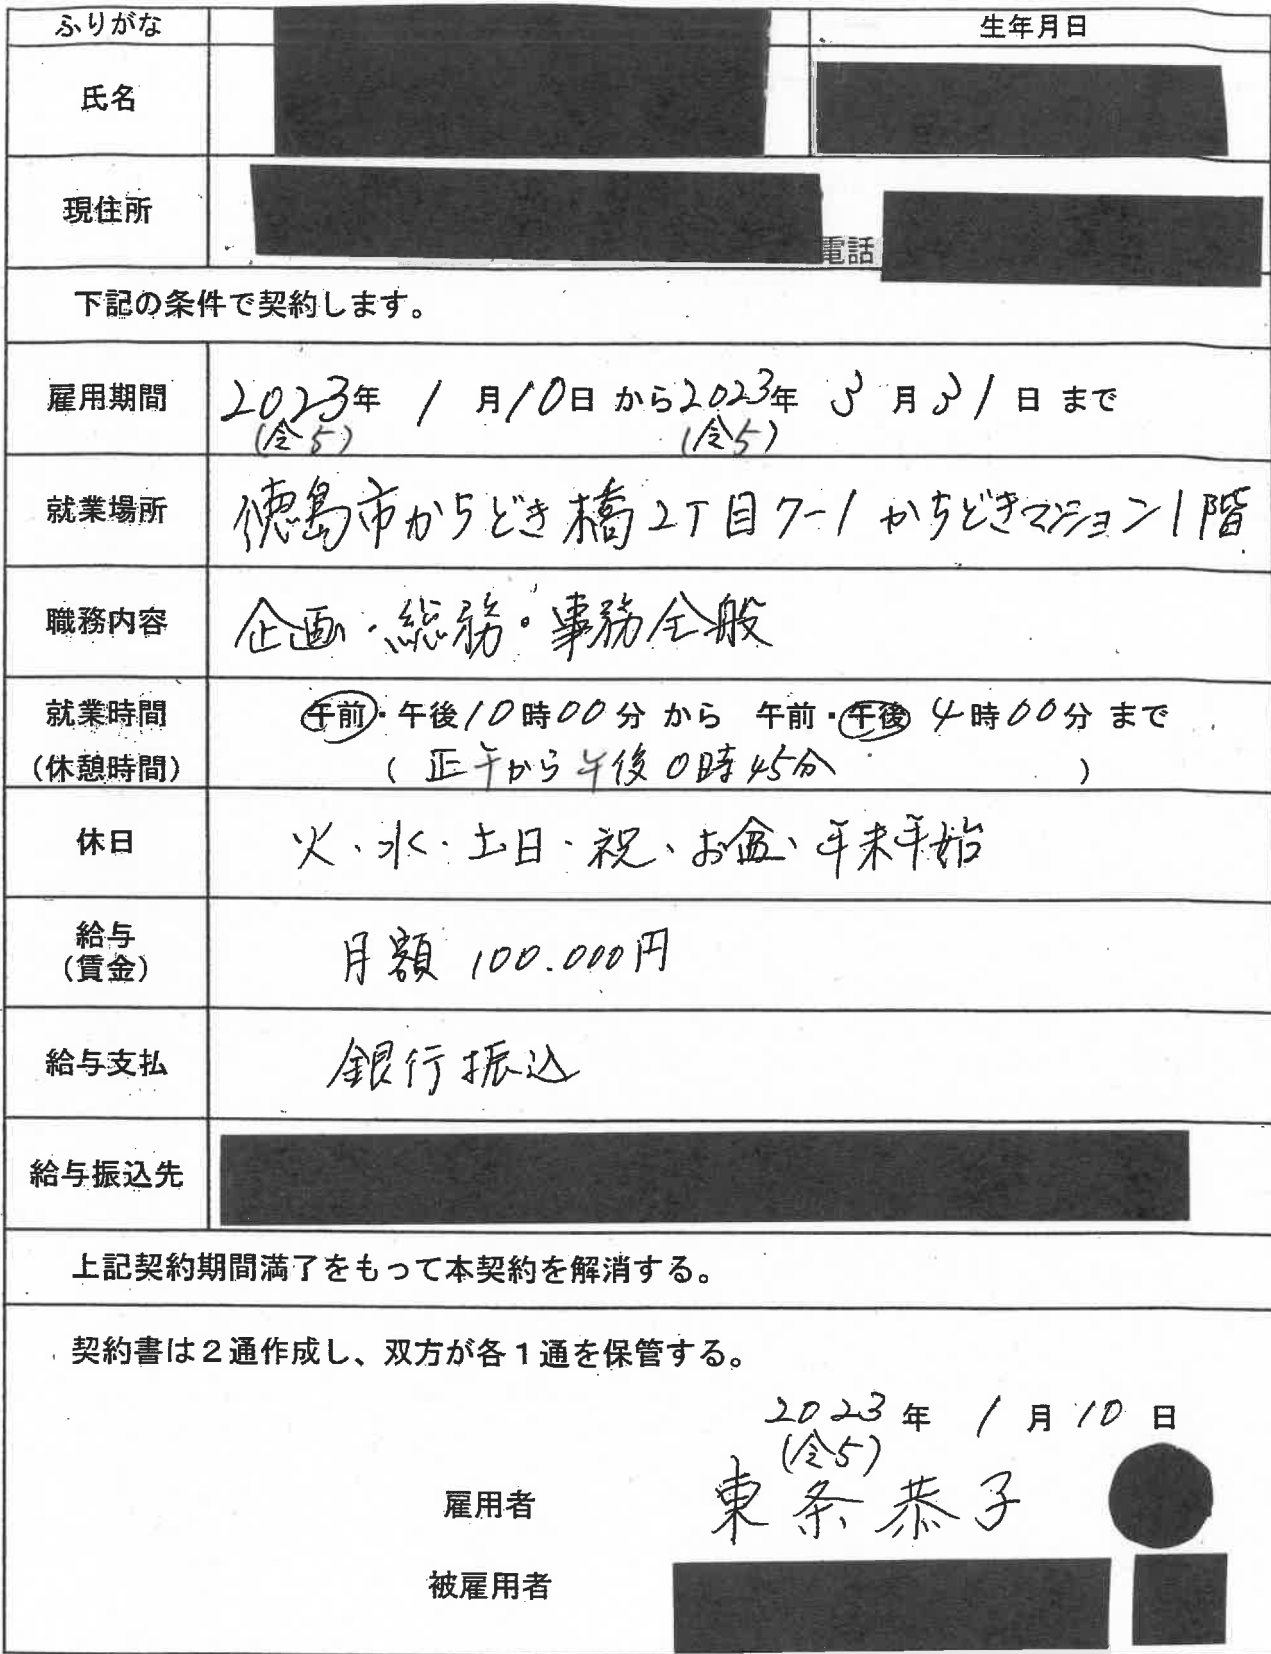 ふりがな
生年月日
氏名
現住所
電話
下記の条件で契約します。
雇用期間 2023年 1月10日 から2023年 3月31日 まで
(令5) (令5)
就業場所 徳島市かちどき橋2丁目7-1 かちどきマンション1階
職務内容 企画・総務・事務全般
就業時間 午前・午後10時00分 から 午前・午後 4時00分 まで
(休憩時間) (正午から午後0時45分 )
休日 火・水・土日・祝・お盆・年末年始
給与 月額 100.000円
(賃金)
給与支払 銀行振込
給与振込先
上記契約期間満了をもって本契約を解消する。
契約書は2通作成し、双方が各1通を保管する。
2023年 1月10日
(令5)
雇用者 東条恭子
被雇用者